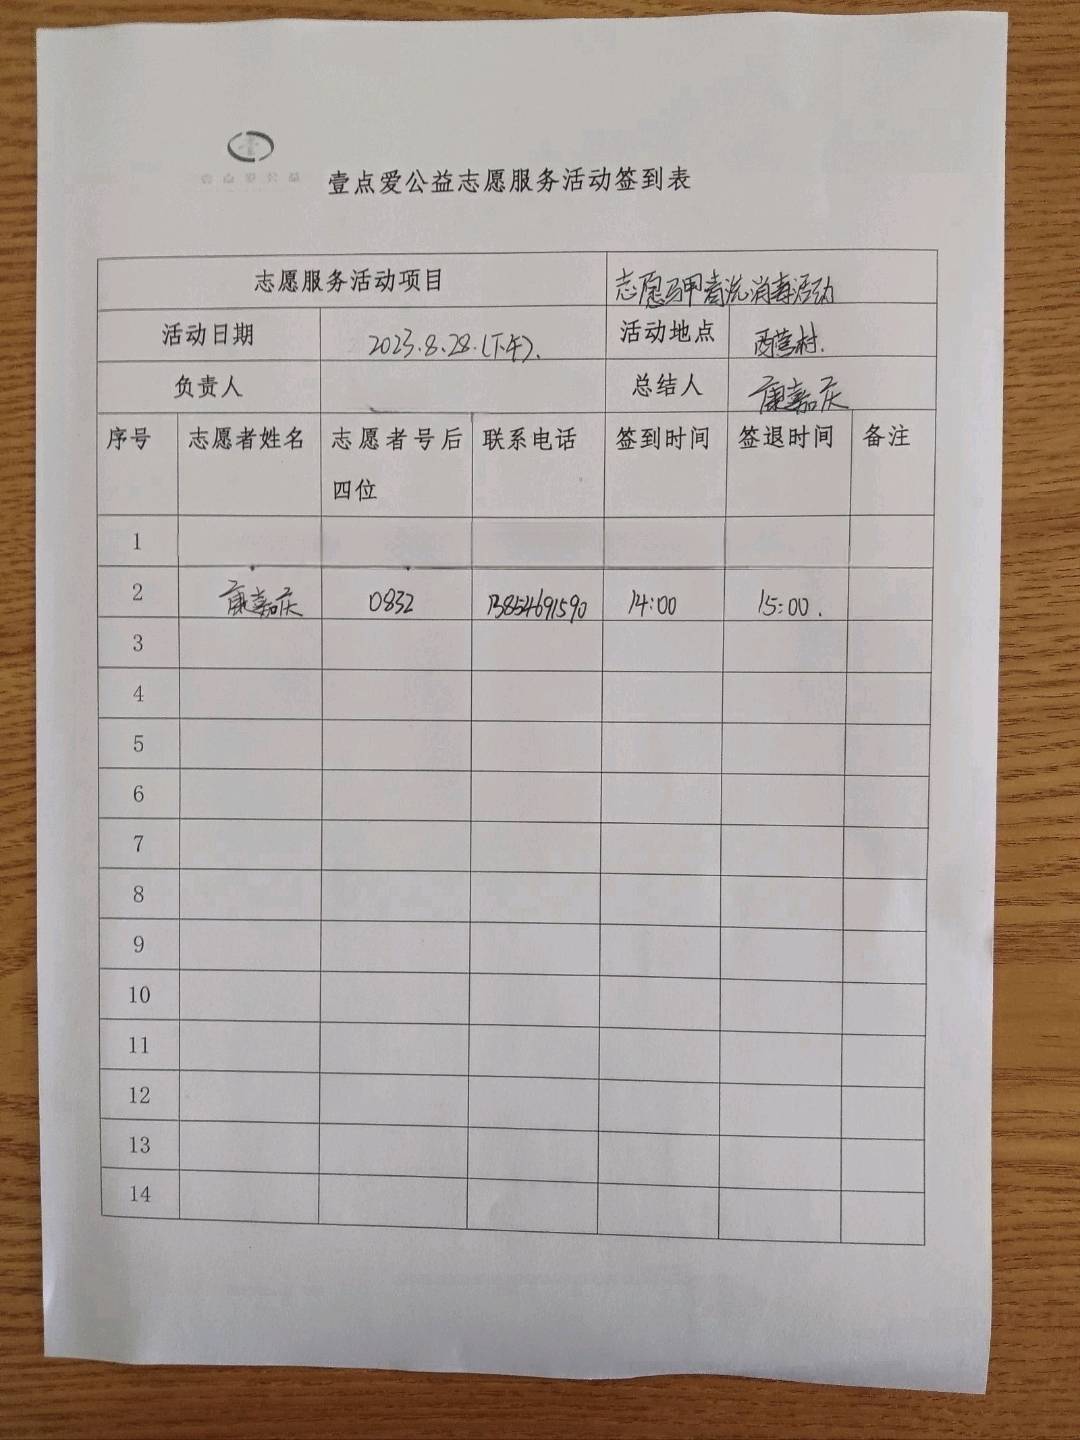 壹点爱公益
壹点爱公益志愿服务活动签到表
志愿服务活动项目 志愿马甲清洗消毒活动
活动日期 2023.8.28.(下午). 活动地点 西营村.
负责人 总结人 康嘉庆
序号 志愿者姓名 志愿者号后 联系电话 签到时间 签退时间 备注
四位
1
2 康嘉庆 0832 13854691590 14:00 15:00.
3
4
5
6
7
8
9
10
11
12
13
14